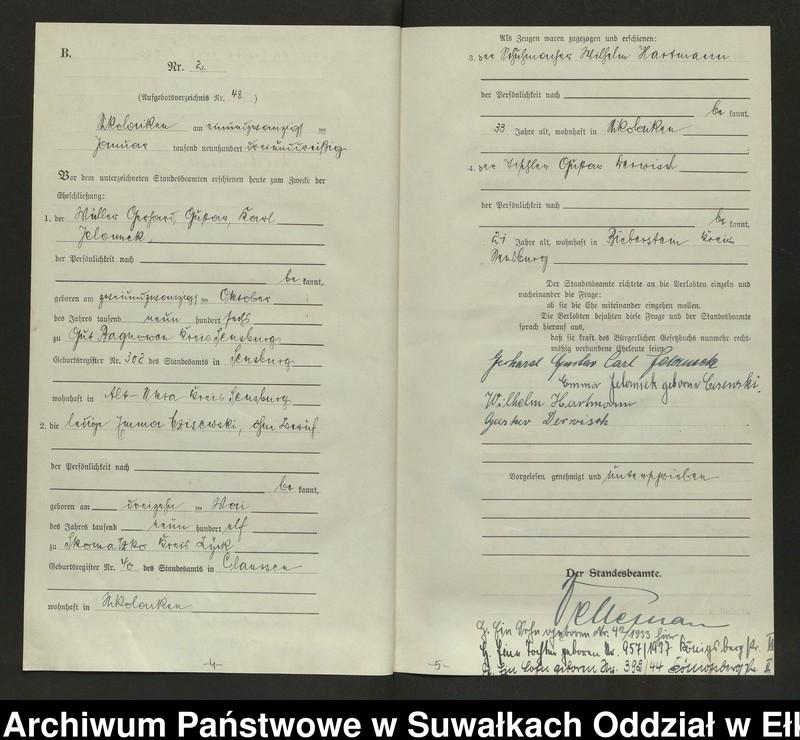 B.
Nr. 2.
(Aufgebotsverzeichnis Nr. 48.)
Nikolaiken am einundzwanzigsten
Januar tausend neunhundert dreiunddreißig
Vor dem unterzeichneten Standesbeamten erschienen heute zum Zwecke der
Eheschließung:
1. der Müller Gerhard, Gustav, Karl
Jelonnek,
der Persönlichkeit nach
be kannt,
geboren am zweiundzwanzigsten Oktober
des Jahres tausend neun hundert sechs
zu Gut Bagnowen Kreis Sensburg
Geburtsregister Nr. 302 des Standesamts in Sensburg
wohnhaft in Alt-Ukta Kreis Sensburg
2. die ledige Emma, ohne Beruf
der Persönlichkeit nach
be kannt,
geboren am dreizehnten Mai
des Jahres tausend neun hundert elf
zu Skomatzko Kreis Lyck
Geburtsregister Nr. 40 des Standesamts in Claussen
wohnhaft in Nikolaiken
-4-
Als Zeugen waren zugezogen und erschienen:
3. der Schuhmacher Wilhelm Hartmann
der Persönlichkeit nach
be kannt,
33 Jahre alt, wohnhaft in Nikolaiken
4. der Tischler Gustav Derwisch
der Persönlichkeit nach
be kannt,
21 Jahre alt, wohnhaft in Bieberstein Kreis
Sensburg
Der Standesbeamte richtete an die Verlobten einzeln und
nacheinander die Frage:
ob sie die Ehe miteinander eingehen wollen.
Die Verlobten bejahten diese Frage und der Standesbeamte
sprach hierauf aus,
daß sie kraft des Bürgerlichen Gesetzbuchs nunmehr recht-
mäßig verbundene Eheleute seien.
Gerhard Gustav Carl Jelonnek
Emma Jelonnek geborne
Wilhelm Hartmann
Gustav Derwisch
Vorgelesen, genehmigt und unterschrieben
Der Standesbeamte.
G. Ein Sohn geboren Nr. 42/1933 hier
G. Eine Tochter geboren Nr. 957/1937 Königsberg Pr. II
G. Ein Sohn geboren Nr. 392/44 Königsberg Pr. II
-5-
Archiwum Państwowe w Suwałkach Oddział w Ełk